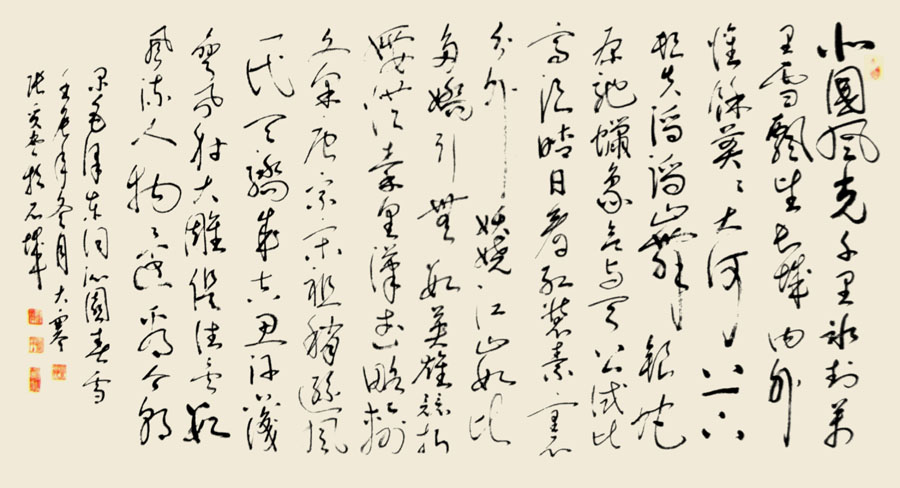 北國風光千里冰封萬
里雪飄望長城内外
惟餘莽〻大河上下
頓失滔滔山舞銀蛇
原馳蠟象欲与天公試比
高須晴日看紅裝素裹
分外妖嬈江山如此
多嬌引無數英雄競折
腰惜秦皇漢武略輸
文采唐宗宋祖稍遜風
一代天驕成吉思汗只識
彎弓射大雕俱往矣數
風流人物還看今朝
毛澤東詞沁園春雪
壬辰年冬月大寒
張於石城